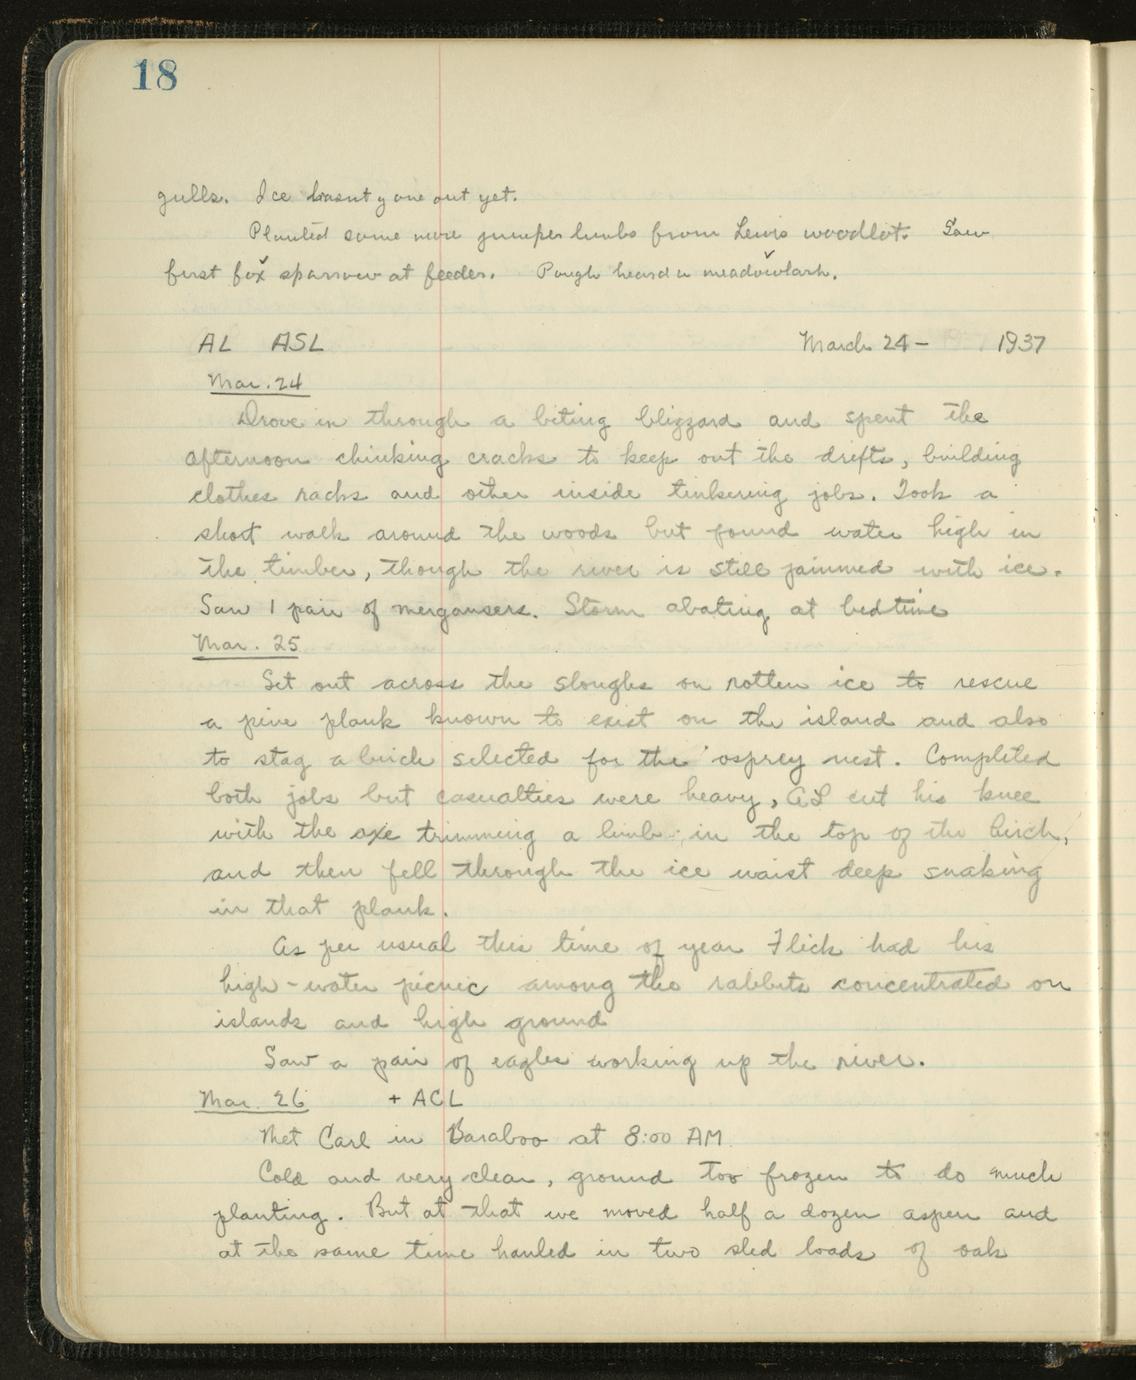 18
gulls. Ice hasnt gone out yet.
Planted some more juniper limbs from Lewis woodlot. Saw
first fox sparrow at feeder. Pough heard a meadowlark.
AL ASL March 24- 1937
Mar. 24
Drove in through a biting blizzard and spent the
afternoon chinking cracks to keep out the drifts, building
clothes racks and other inside tinkering jobs. Took a
short walk around the woods but found water high in
the timber, though the river is still jammed with ice.
Saw 1 pair of mergansers. Storm abating at bedtime
Mar. 25
Set out across the sloughs on rotten ice to rescue
a pine plank known to exist on the island and also
to stag a birch selected for the osprey nest. Completed
both jobs but casualties were heavy, AL cut his knee
with the axe trimming a limb in the top of the birch,
and then fell through the ice waist deep snaking
in that plank.
As per usual this time of year Flick had his
high-water picnic among the rabbits concentrated on
islands and high ground
Saw a pair of eagles working up the river.
Mar. 26 + ACL
Met Carl in Baraboo at 8:00 AM.
Cold and very clear, ground too frozen to do much
planting. But at that we moved half a dozen aspen and
at the same time hauled in two sled loads of oak